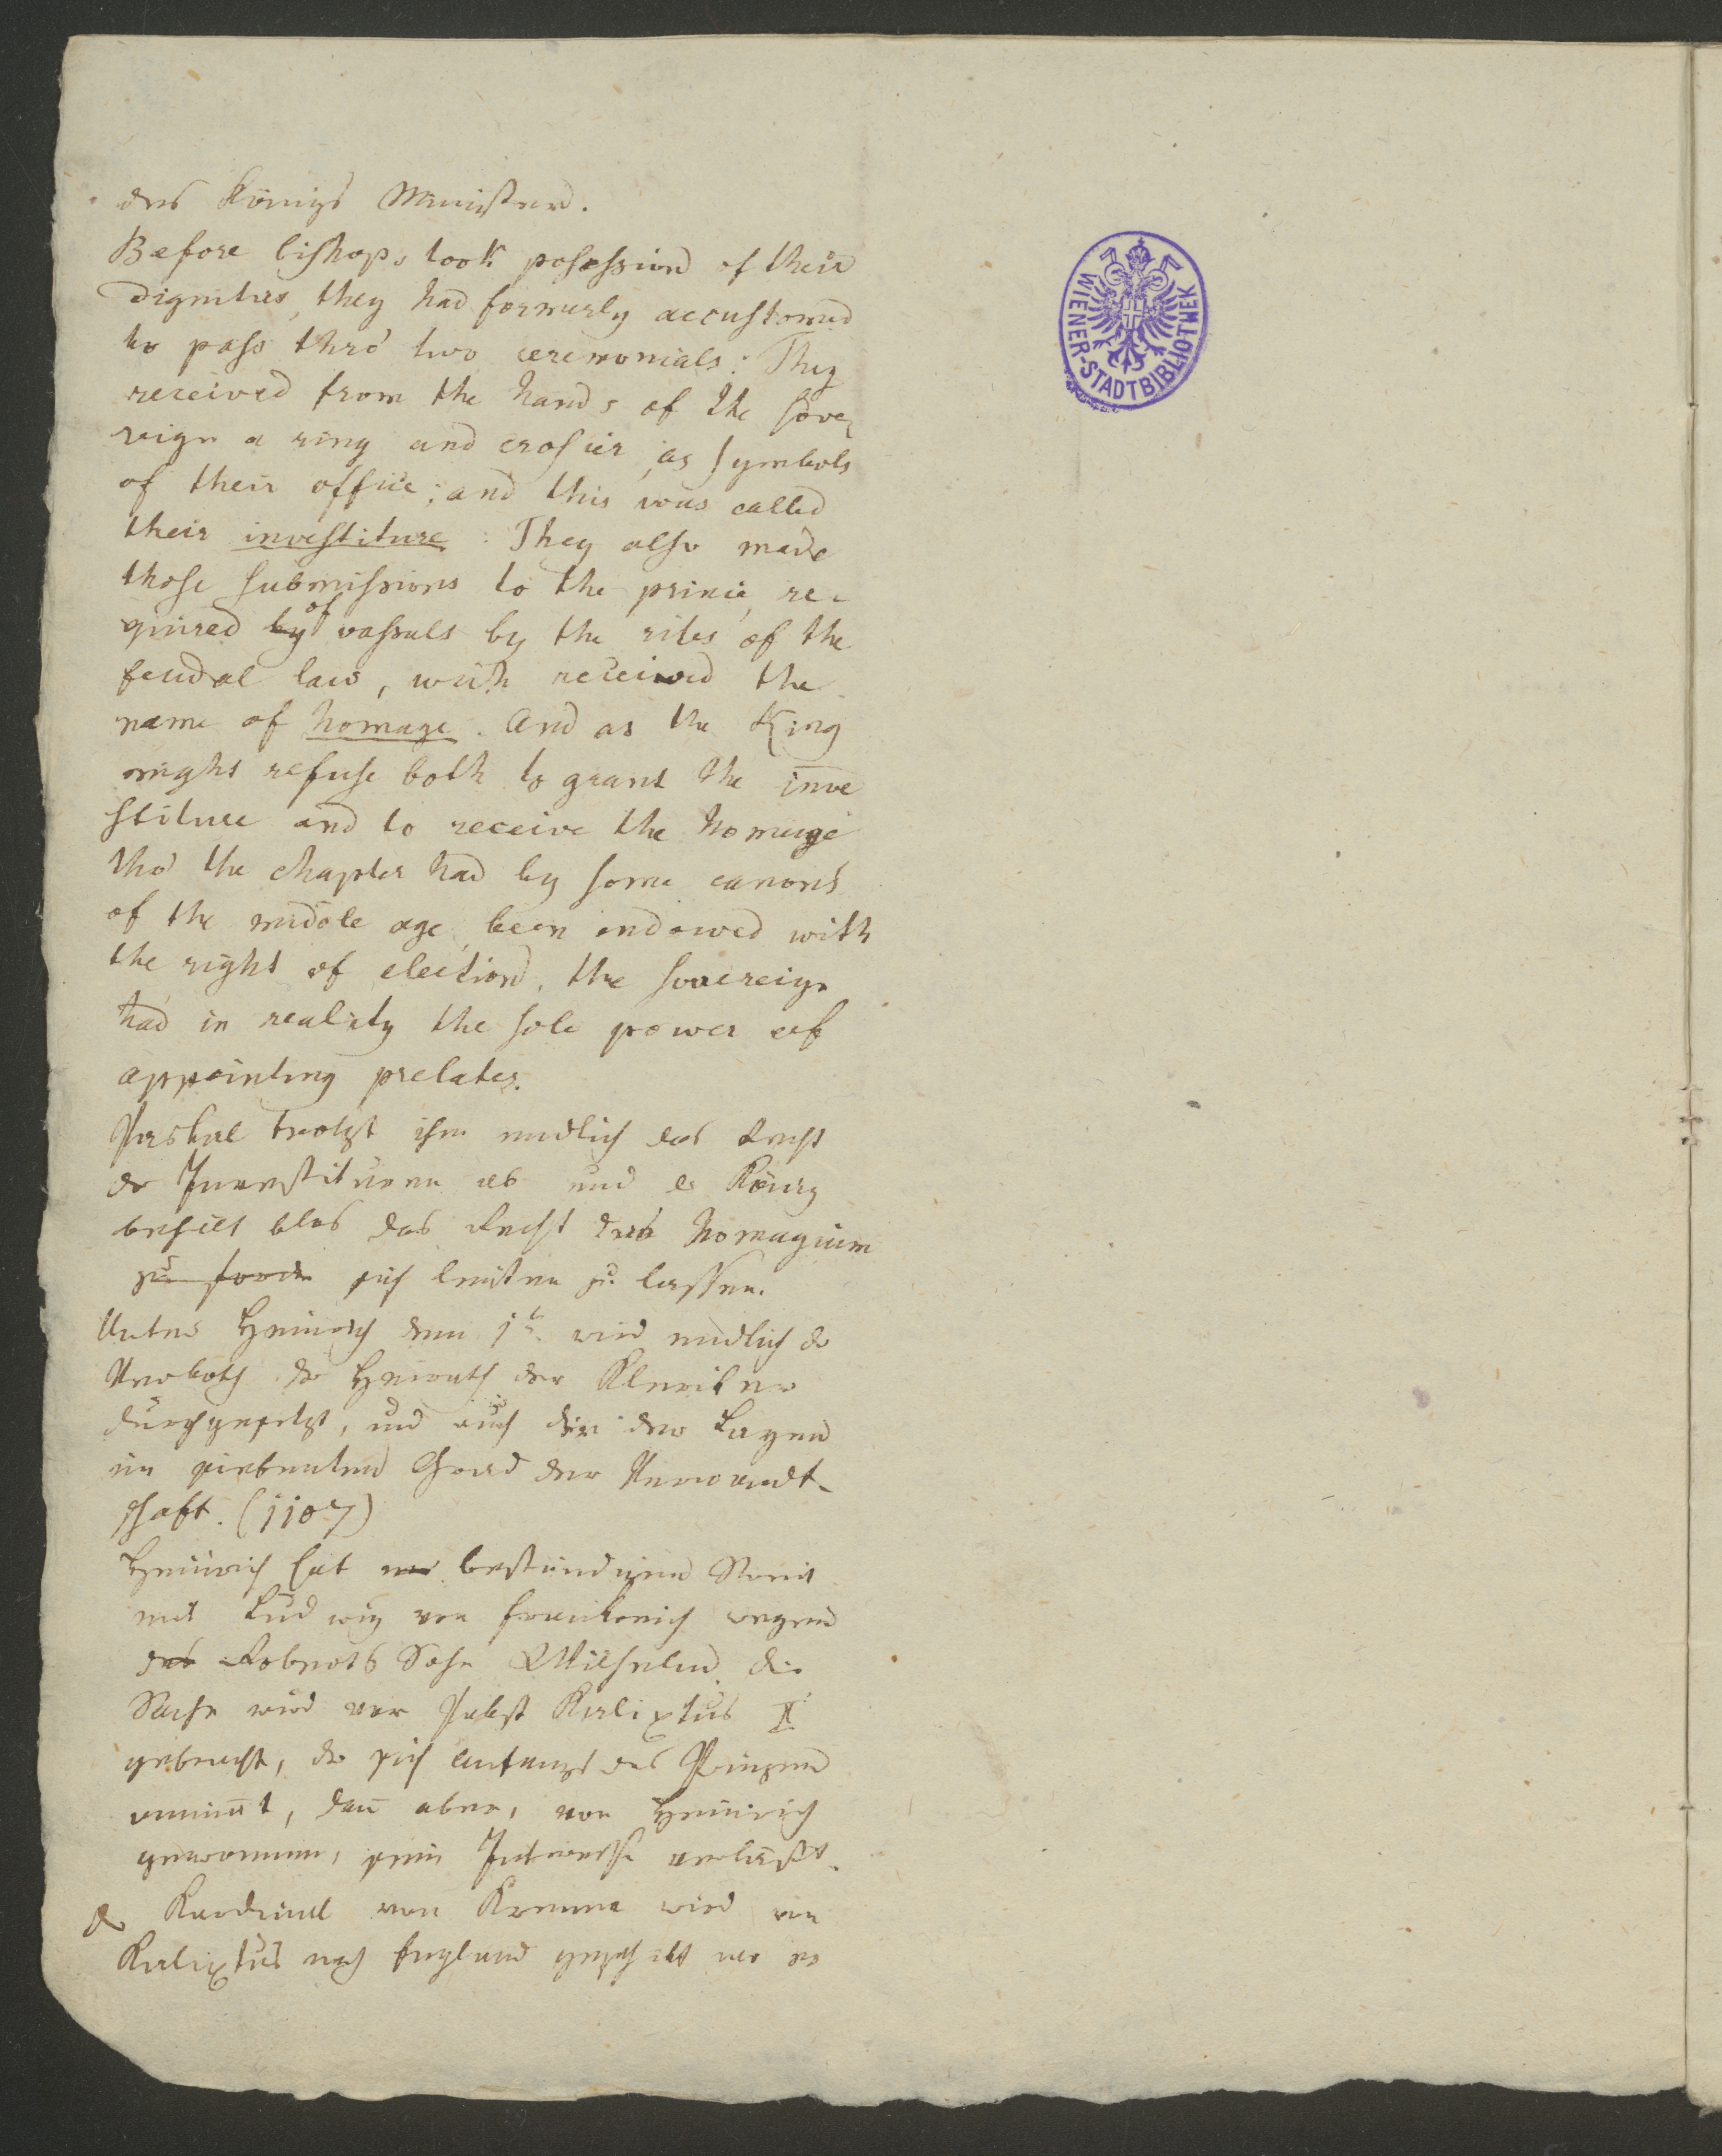 des Königs Minister.
Before bishops took posession of their
dignities, they had formerly accustomed
to pass thro' two ceremonials: They
received from the hands of the sove
reign a ring and crosier, as symbols
of their office; and this was called
their investiture: They also made
those submissions to the prince, re-
quired by of vassals by the rites of the
feudal law, wich received the
name of homage. And as the King
might refuse both to grant the inve
stiture and to receive the homage
tho' the chapter had by some canons
of the midole age, been endowed with
the right of election, the sovereign
had in reality the sole power of
appointing prelates.
Paskal trotzt ihm endlich das Recht
der Investituren ab und der König
behielt blos das Recht das homagium
zu ford sich leisten zu lassen.
Unter Heinrich dem 1t. wird endlich das
Verboth der Heirath der Kleriker
durchgesetzt, und auch die der Layen
im siebenten Grad der Verwandt-
schaft. (1107)
Heinrich hat beständigen Streit
mit Ludwig von Frankreich wegen
des Roberts Sohn Wilhelm. die
Sache wird vor Pabst Kalixtus II
gebracht, der sich anfangs des Prinzen
annimt, dan aber, von Heinrich
gewonnen, sein Interesse verläßt.
Der Kardinal von Krema wird von
Kalixtus nach England geschikt wo er
WIENER-STADTBIBLIOTHEK